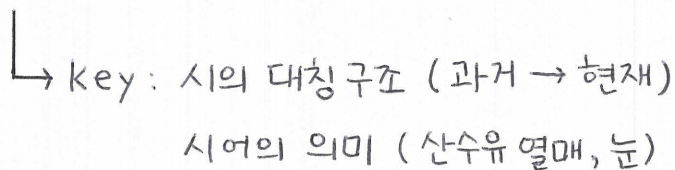 ↳ key : 시의 대칭구조 (과거 → 현재)
시어의 의미 (산수유 열매, 눈)